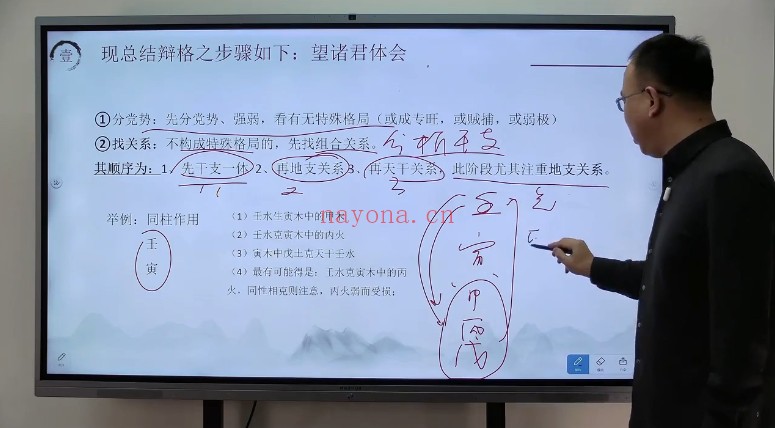 壹
现总结辩格之步骤如下：望诸君体会
①分党势：先分党势、强弱，看有无特殊格局（或成专旺，或贼捕，或弱极）
②找关系：不构成特殊格局的，先找组合关系。分析干支
其顺序为：1、先干支一体 2、再地支关系 3、再天干关系，此阶段尤其注重地支关系。
1 2 3
举例：同柱作用
壬
寅
（1）壬水生寅木中的甲木
（2）壬水克寅木中的丙火
（3）寅木中戊土克天干壬水
（4）最有可能得是：壬水克寅木中的丙
火、同性相克则注意，丙火弱而受损；
壬
寅
甲
丙
戊
nayona.cn